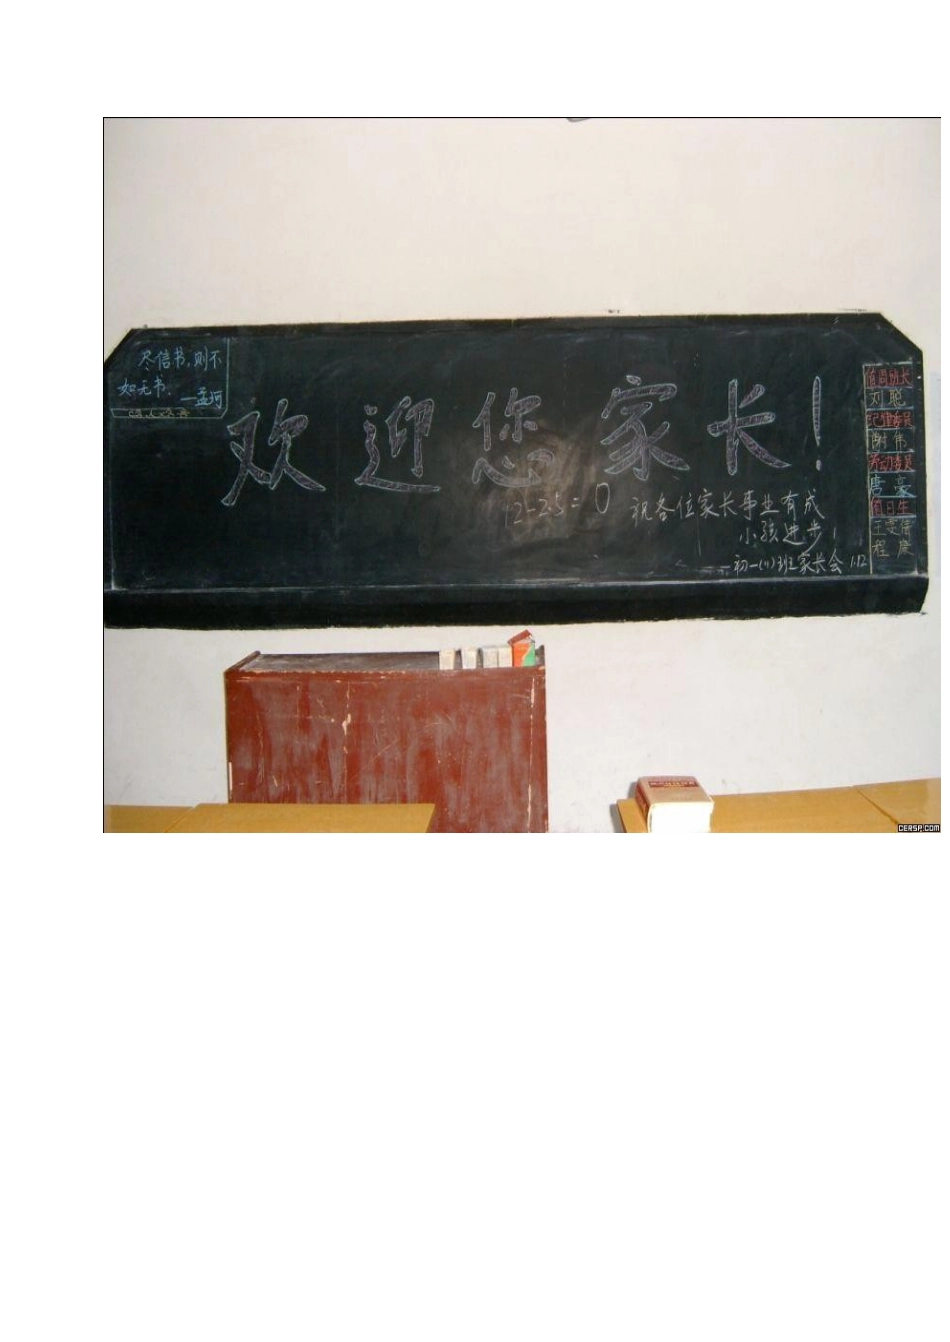 尽信书,则不
如无书.
—孟珂
欢迎您家长!
12-2.5=0
祝各位家长事业有成
小孩进步!
——初一(11)班家长会 1.12
值周班长
刘聪
纪律委员
谢伟
劳动委员
唐豪
值日生
王雯倩
程度
CERSP.COM